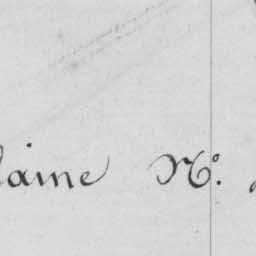 laine N.º